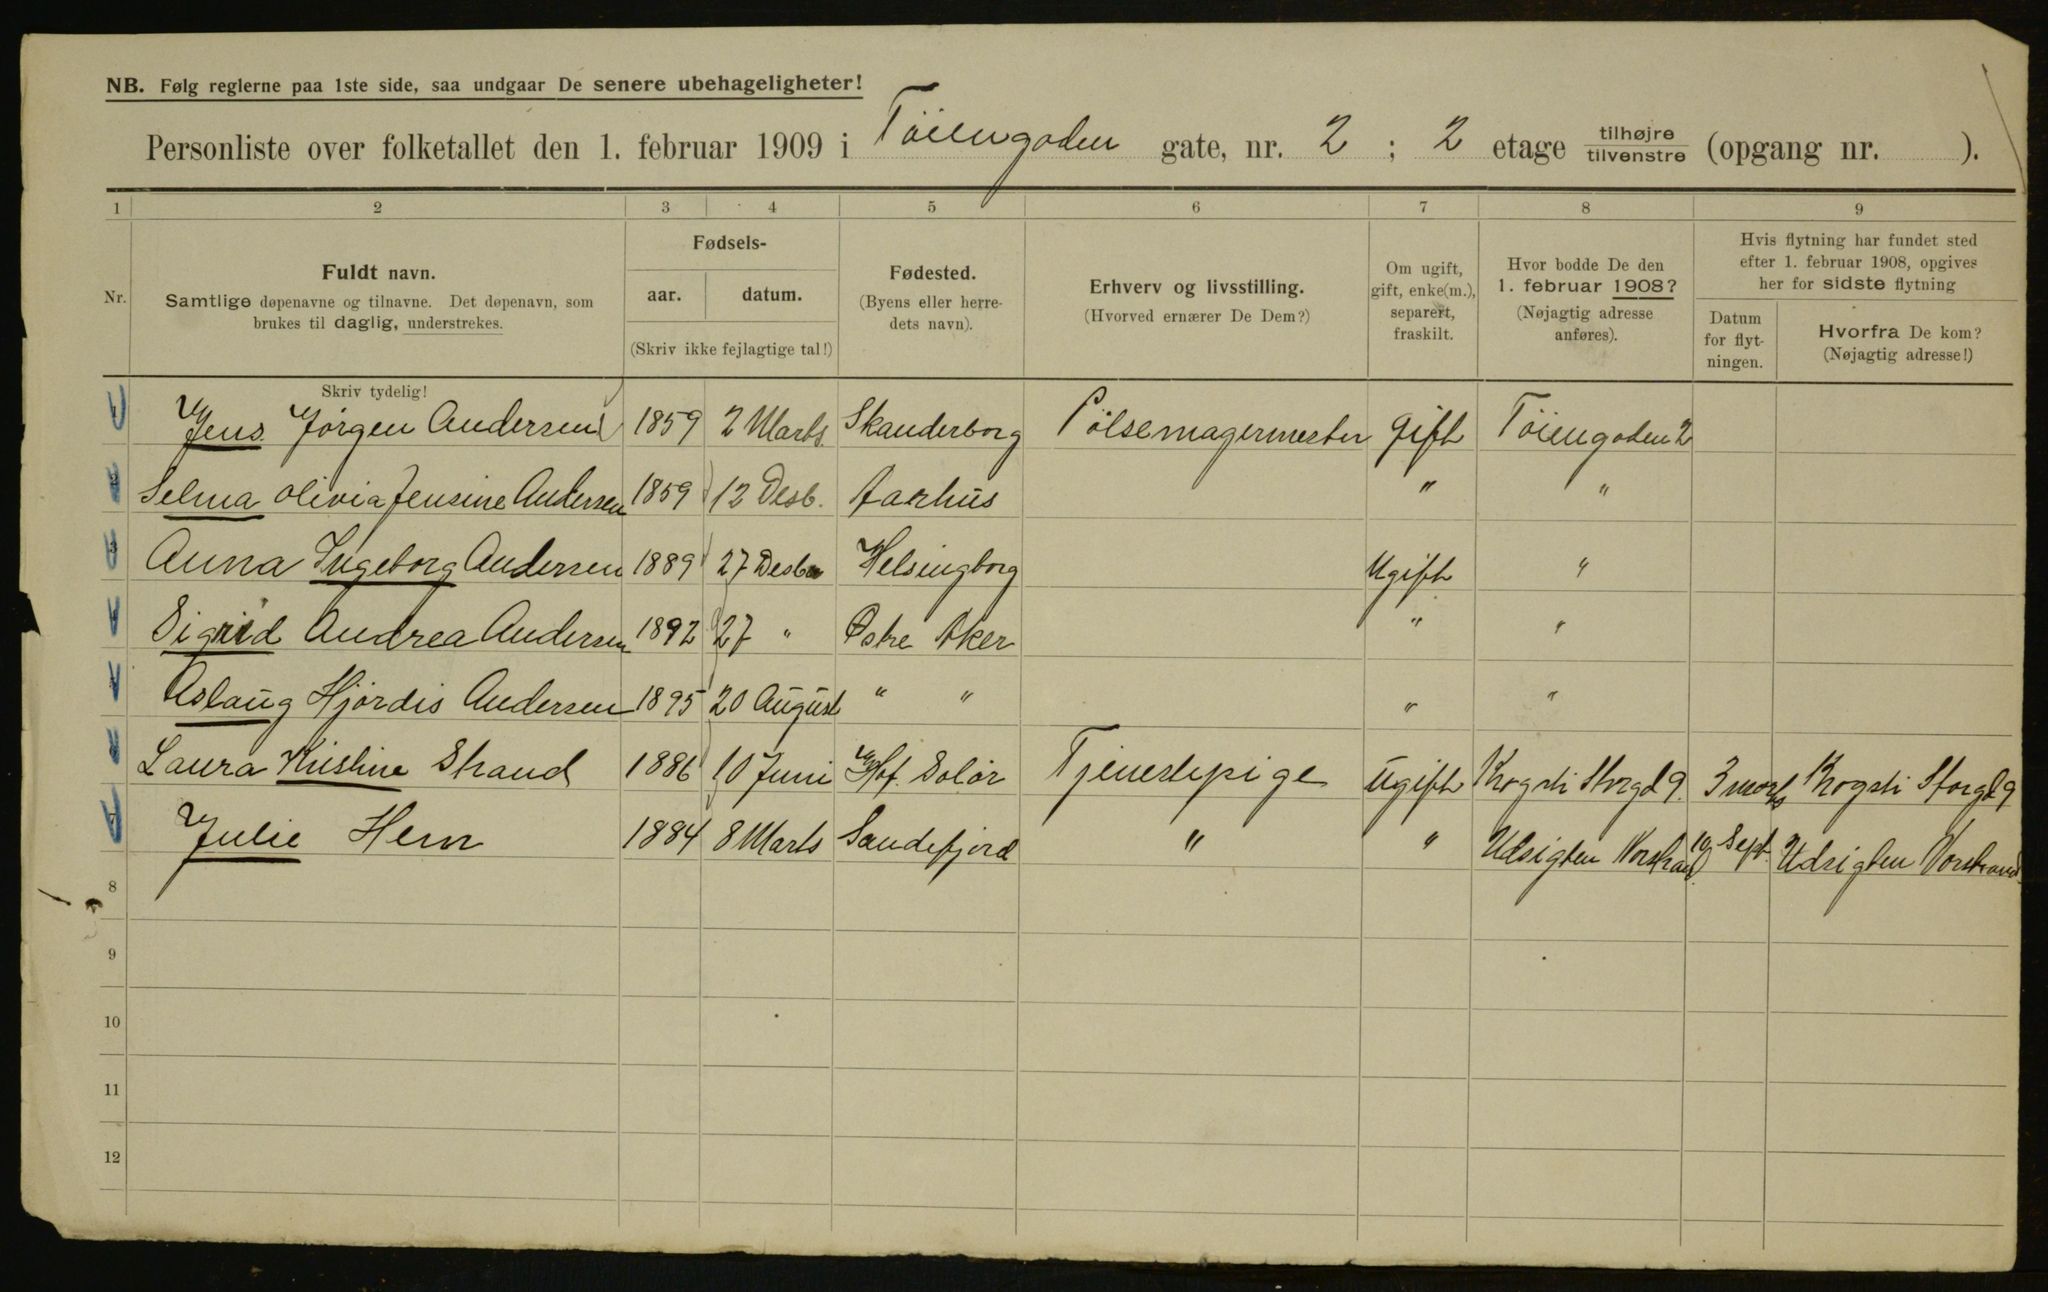 NB. Følg reglerne paa 1ste side, saa undgaar De senere ubehageligheter!
Personliste over folketallet den 1. februar 1909 i Töiengaden gate, nr. 2 ; 2 etage tilhøjre tilvenstre (opgang nr. ).
1 2 3 4 5 6 7 8 9
Nr.
Fuldt navn.
Samtlige døpenavne og tilnavne. Det døpenavn, som
brukes til daglig, understrekes.
Skriv tydelig!
Fødsels-
aar. datum.
(Skriv ikke fejlagtige tal!)
Fødested.
(Byens eller herre-
dets navn).
Erhverv og livsstilling.
(Hvorved ernærer De Dem?)
Om ugift,
gift, enke(m.),
separert,
fraskilt.
Hvor bodde De den
1. februar 1908?
(Nøjagtig adresse
anføres).
Hvis flytning har fundet sted
efter 1. februar 1908, opgives
her for sidste flytning
Datum
for flyt-
ningen.
Hvorfra De kom?
(Nøjagtig adresse!)
1 Jens Jørgen Andersen 1859 2 Marts Skanderborg Pölsemagermester gift Töiengaden 2
2 Selma Olivia Jensine Andersen 1859 12 Desb. Aarhus " "
3 Anna Ingeborg Andersen 1889 27 Desb Helsingborg Ugift "
4 Sigrid Andrea Andersen 1892 27 " Østre Aker " "
5 Aslaug Hjördis Andersen 1895 20 August " " " "
6 Laura Kristine Strand 1886 10 Juni Hof. Solör Tjenestepige Ugift Krogsti Storgd 9. 3 Krogsti Storgd 9
7 Julie Hem 1884 8 Marts Sandefjord " " Udsigten Norstrand 10 Sept. Udsigten Norstrand
8
9
10
11
12